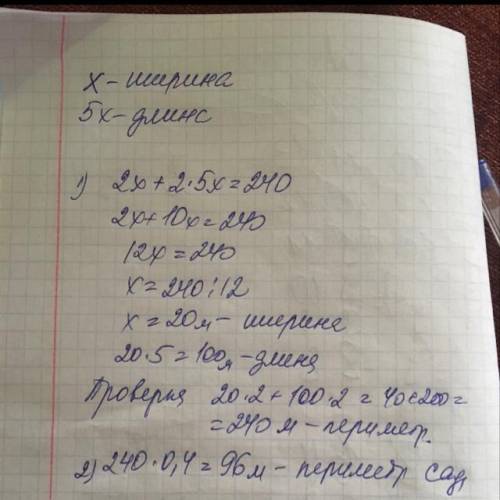 х – ширина
5х – длина
1) 2х + 2·5х = 240
2х + 10х = 240
12х = 240
х = 240 : 12
х = 20м – ширина
20·5 = 100м – длина
Проверка 20·2 + 100·2 = 40+200 =
= 240 м – периметр.
2) 240·0,4 = 96м – периметр сад